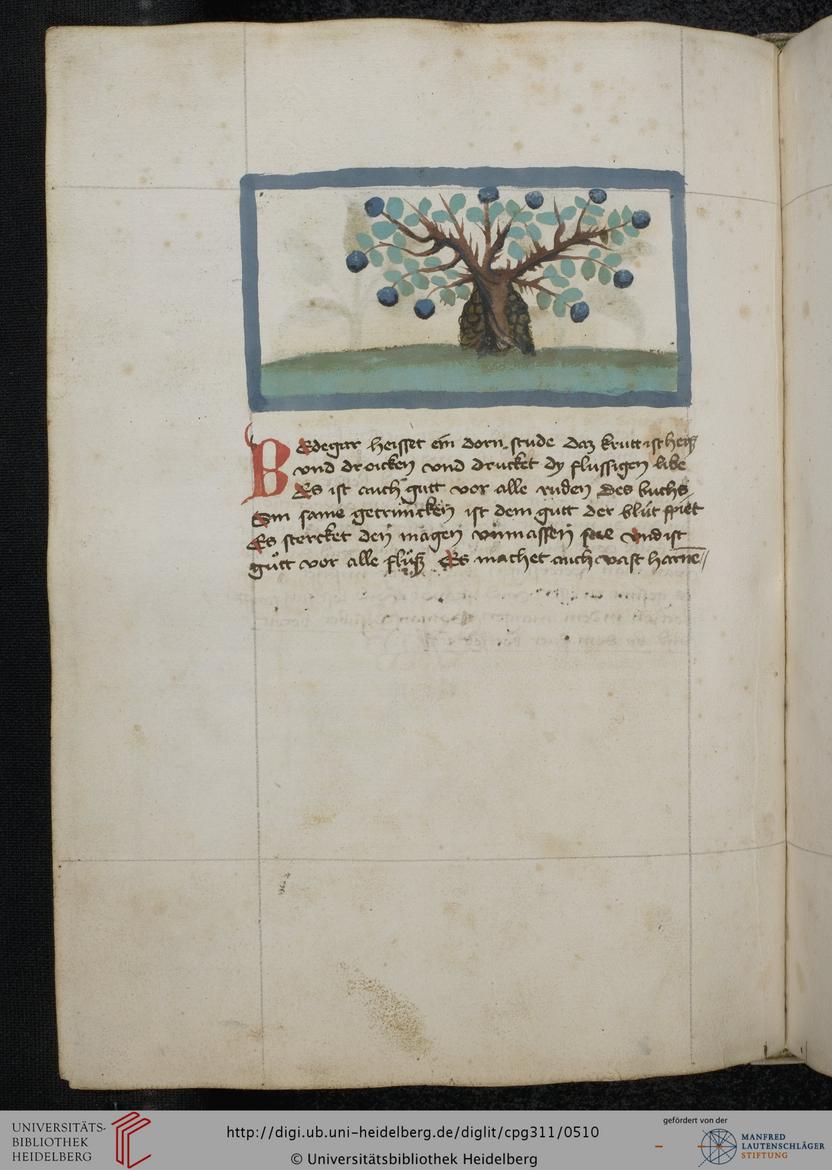 Bedegar heisset ein dorn stude daz krutt ist heiß
vnd drocken vnd drucket dy flussigen libe
Es ist auch gutt vor alle ruden des buchs
Sin same getrūncken ist dem gutt der blůt spiet
Es stercket den magen vnmassen sere vnd ist
gůtt vor alle flůß Es machet auch vast harnē
UNIVERSITÄTS-
BIBLIOTHEK
HEIDELBERG
http://digi.ub.uni-heidelberg.de/diglit/cpg311/0510
© Universitätsbibliothek Heidelberg
gefördert von der
MANFRED
LAUTENSCHLÄGER
STIFTUNG